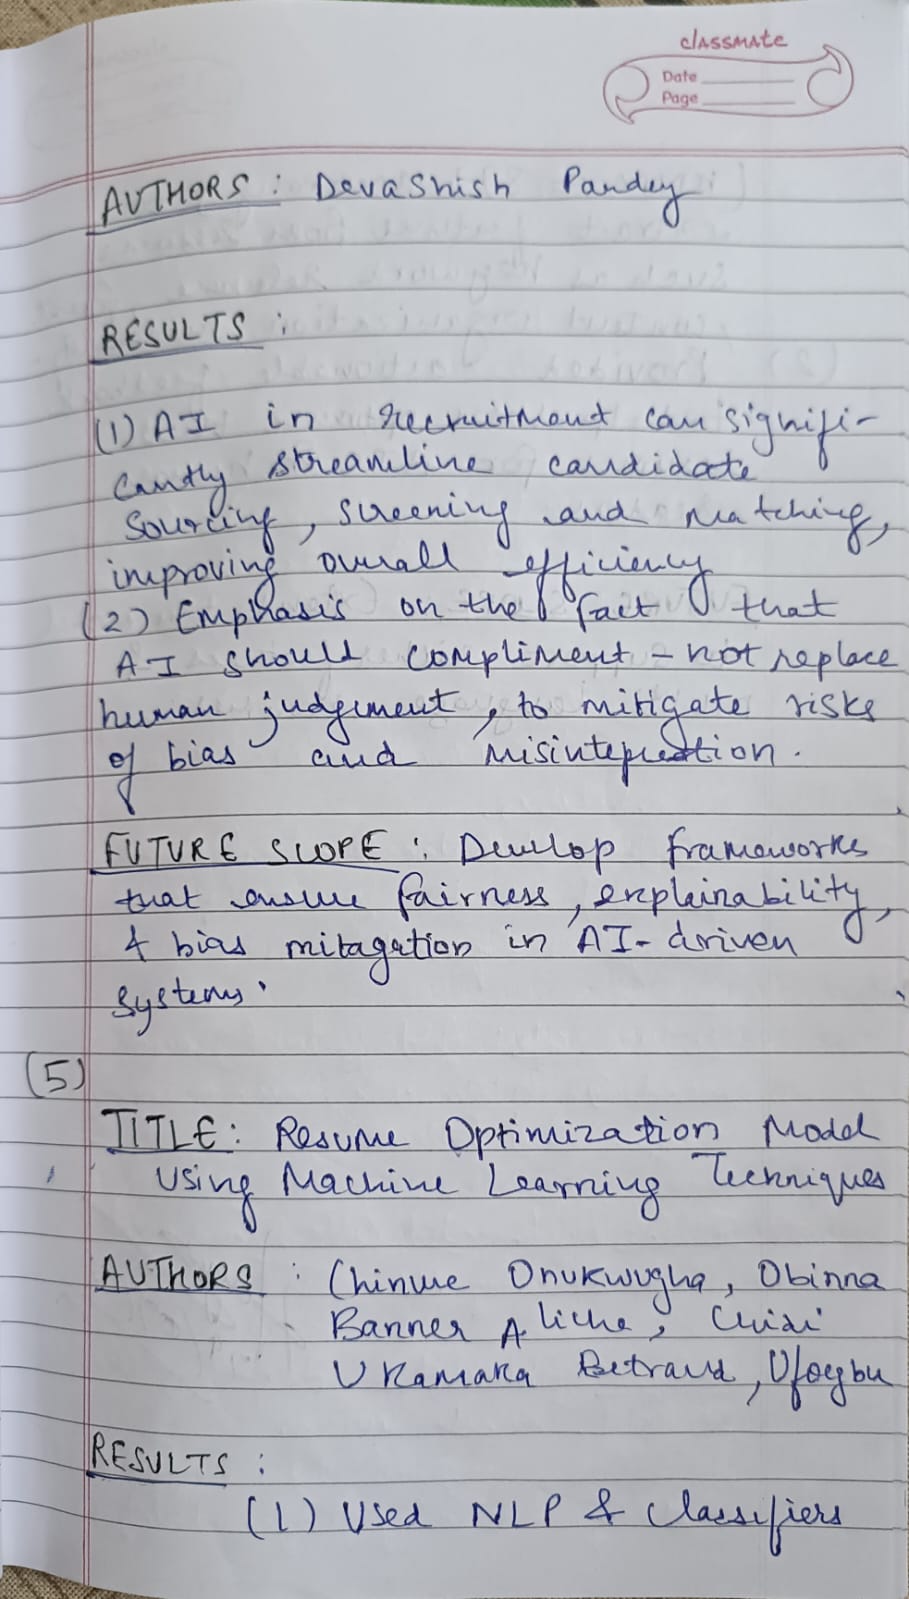 classmate
Date
Page
AUTHORS : Devashish Pandey
RESULTS :
(1) AI in recruitment can signifi-
cantly streamline candidate
sourcing, screening and matching,
improving overall efficiency
(2) Emphasis on the fact that
AI should compliment - not replace
human judgement, to mitigate risks
of bias and
FUTURE SCOPE : Develop frameworks
that ensure fairness, explainability,
& bias mitagation in AI-driven
systems.
(5)
TITLE: Resume Optimization Model
Using Machine Learning Techniques
AUTHORS : Chinwe Onukwugha, Obinna
Banner Aliche,
Ukamaka Betrand, Ufoegbu
RESULTS :
(1) Used NLP & Classifiers